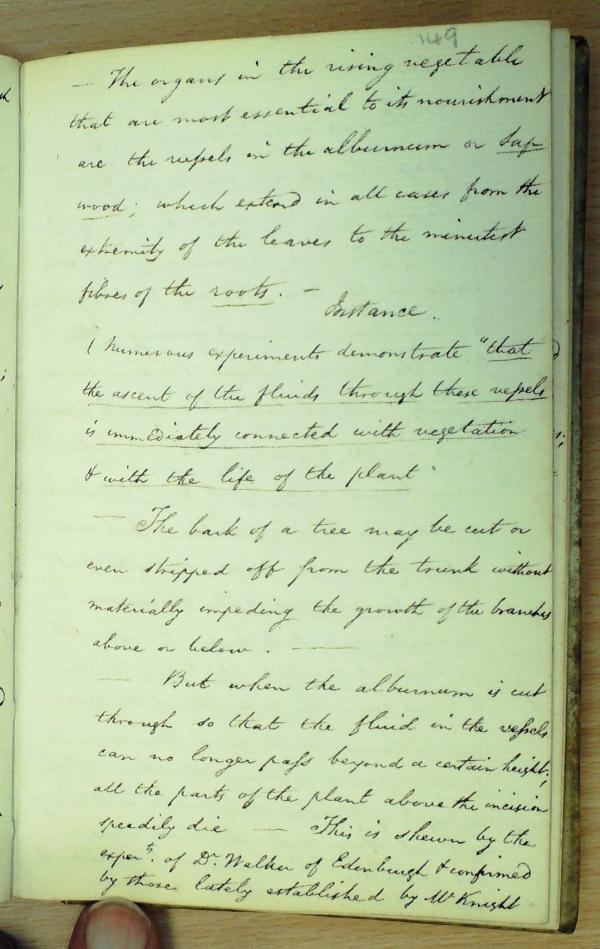 149
— The organs in the rising vegetable
that are most essential to its nourishment
are the vessels in the alburnum or Sap
wood; which extend in all cases from the
extremity of the leaves to the minutest
fibres of the roots. —
Instance.
( Numerous experiments demonstrate "that
the ascent of the fluids through these vessels
is immediately connected with vegetation
& with the life of the plant"
— The bark of a tree may be cut or
even stripped off from the trunk without
materially impeding the growth of the branches
above or below. —
— But when the alburnum is cut
through so that the fluid in the vessels
can no longer pass beyond a certain height;
all the parts of the plant above the incision
speedily die — This is shewn by the
experts. of Dr. Walker of Edenburgh & confirmed
by those lately established by Mr Knight